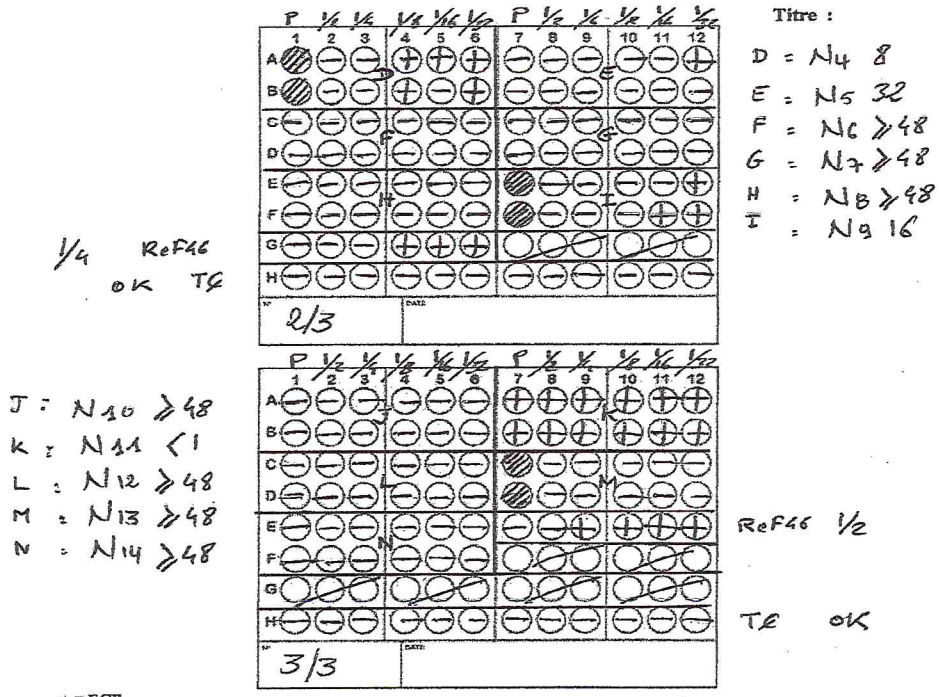 P 1/2 1/4 1/8 1/16 1/32 P 1/2 1/4 1/8 1/16 1/32
1 2 3 4 5 6 7 8 9 10 11 12
A
B
C
D
E
F
G
H
D E
F G
H I
N° 2/3 DATE
Titre :
D = N4 8
E = N5 32
F = N6 ≥48
G = N7 ≥48
H = N8 ≥48
I = N9 16
1/4 ReF46
OK
P 1/2 1/4 1/8 1/16 1/32 P 1/2 1/4 1/8 1/16 1/32
1 2 3 4 5 6 7 8 9 10 11 12
A
B
C
D
E
F
G
H
J K
L M
N
N° 3/3 DATE
J : N10 ≥48
K : N11 <1
L : N12 ≥48
M : N13 ≥48
N = N14 ≥48
ReF46 1/2
OK